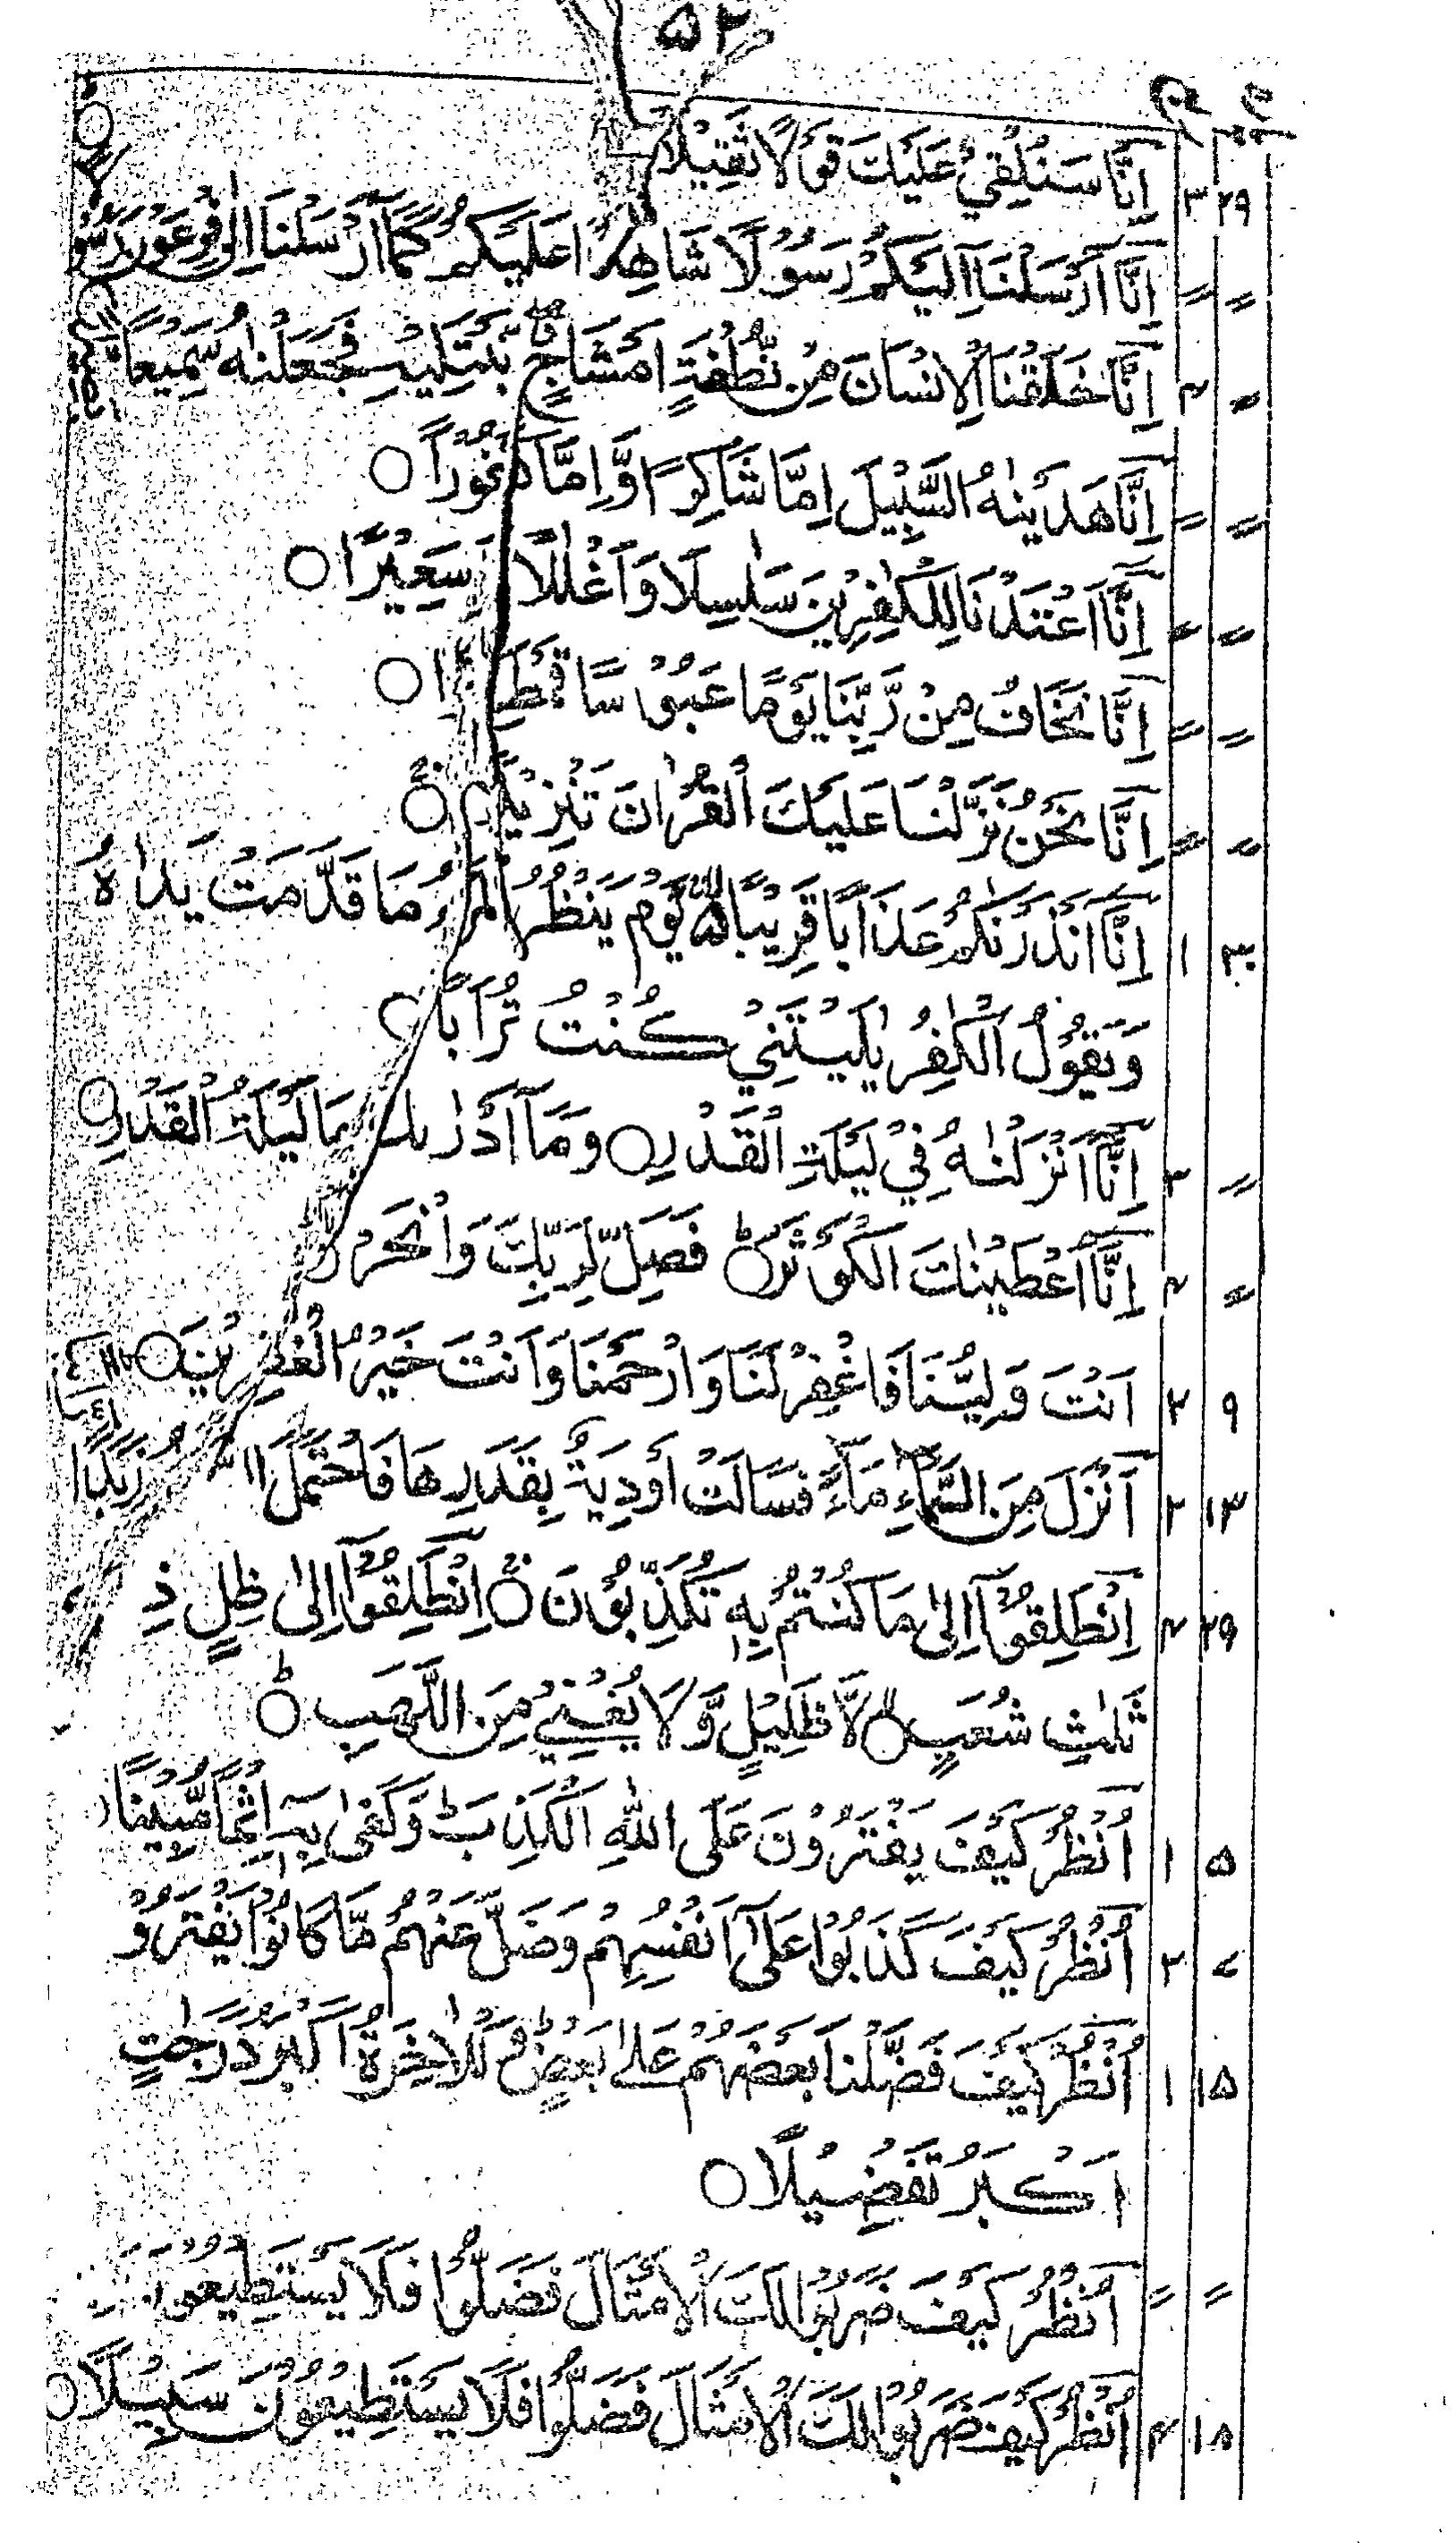 ۵۲
۲۹ ۳ اِنَّا سَنُلْقِيْ عَلَيْكَ قَوْلًا ثَقِيْلًا
〃 〃 اِنَّآ اَرْسَلْنَآ اِلَيْكُمْ رَسُوْلًا شَاهِدًا عَلَيْكُمْ كَمَآ اَرْسَلْنَآ اِلٰى فِرْعَوْنَ رَسُوْ
〃 ۴ اِنَّا خَلَقْنَا الْاِنْسَانَ مِنْ نُّطْفَةٍ اَمْشَاجٍ نَّبْتَلِيْهِ فَجَعَلْنٰهُ سَمِيْعًا
〃 〃 اِنَّا هَدَيْنٰهُ السَّبِيْلَ اِمَّا شَاكِرًا وَّاِمَّا كَفُوْرًا ○
〃 〃 اِنَّآ اَعْتَدْنَا لِلْكٰفِرِيْنَ سَلٰسِلَا وَاَغْلٰلًا وَّسَعِيْرًا ○
〃 〃 اِنَّا نَخَافُ مِنْ رَّبِّنَا يَوْمًا عَبُوْسًا قَمْطَرِيْرًا ○
〃 〃 اِنَّا نَحْنُ نَزَّلْنَا عَلَيْكَ الْقُرْاٰنَ تَنْزِيْلًا ○
۳۰ ۱ اِنَّآ اَنْذَرْنٰكُمْ عَذَابًا قَرِيْبًا يَّوْمَ يَنْظُرُ الْمَرْءُ مَا قَدَّمَتْ يَدٰهُ
وَيَقُوْلُ الْكٰفِرُ يٰلَيْتَنِيْ كُنْتُ تُرٰبًا ○
〃 ۳ اِنَّآ اَنْزَلْنٰهُ فِيْ لَيْلَةِ الْقَدْرِ ○ وَمَآ اَدْرٰىكَ مَا لَيْلَةُ الْقَدْرِ ○
〃 ۴ اِنَّآ اَعْطَيْنٰكَ الْكَوْثَرَ ○ فَصَلِّ لِرَبِّكَ وَانْحَرْ
۹ ۲ اَنْتَ وَلِيُّنَا فَاغْفِرْ لَنَا وَارْحَمْنَا وَاَنْتَ خَيْرُ الْغٰفِرِيْنَ ○
۱۳ ۲ اَنْزَلَ مِنَ السَّمَآءِ مَآءً فَسَالَتْ اَوْدِيَةٌ بِقَدَرِهَا فَاحْتَمَلَ السَّيْلُ زَبَدًا
۲۹ ۴ اِنْطَلِقُوْٓا اِلٰى مَا كُنْتُمْ بِهٖ تُكَذِّبُوْنَ ○ اِنْطَلِقُوْٓا اِلٰى ظِلٍّ ذِ
ثَلٰثِ شُعَبٍ ○ لَّا ظَلِيْلٍ وَّلَا يُغْنِيْ مِنَ اللَّهَبِ ○
۵ ۱ اُنْظُرْ كَيْفَ يَفْتَرُوْنَ عَلَى اللّٰهِ الْكَذِبَ ط وَكَفٰى بِهٖٓ اِثْمًا مُّبِيْنًا
۷ ۲ اُنْظُرْ كَيْفَ كَذَبُوْا عَلٰٓى اَنْفُسِهِمْ وَضَلَّ عَنْهُمْ مَّا كَانُوْا يَفْتَرُوْ
۱۵ ۱ اُنْظُرْ كَيْفَ فَضَّلْنَا بَعْضَهُمْ عَلٰى بَعْضٍ ط وَلَلْاٰخِرَةُ اَكْبَرُ دَرَجٰتٍ
اَكْبَرُ تَفْضِيْلًا ○
〃 〃 اُنْظُرْ كَيْفَ ضَرَبُوْا لَكَ الْاَمْثَالَ فَضَلُّوْا فَلَا يَسْتَطِيْعُوْنَ
۱۸ ۴ اُنْظُرْ كَيْفَ ضَرَبُوْا لَكَ الْاَمْثَالَ فَضَلُّوْا فَلَا يَسْتَطِيْعُوْنَ سَبِيْلًا ○